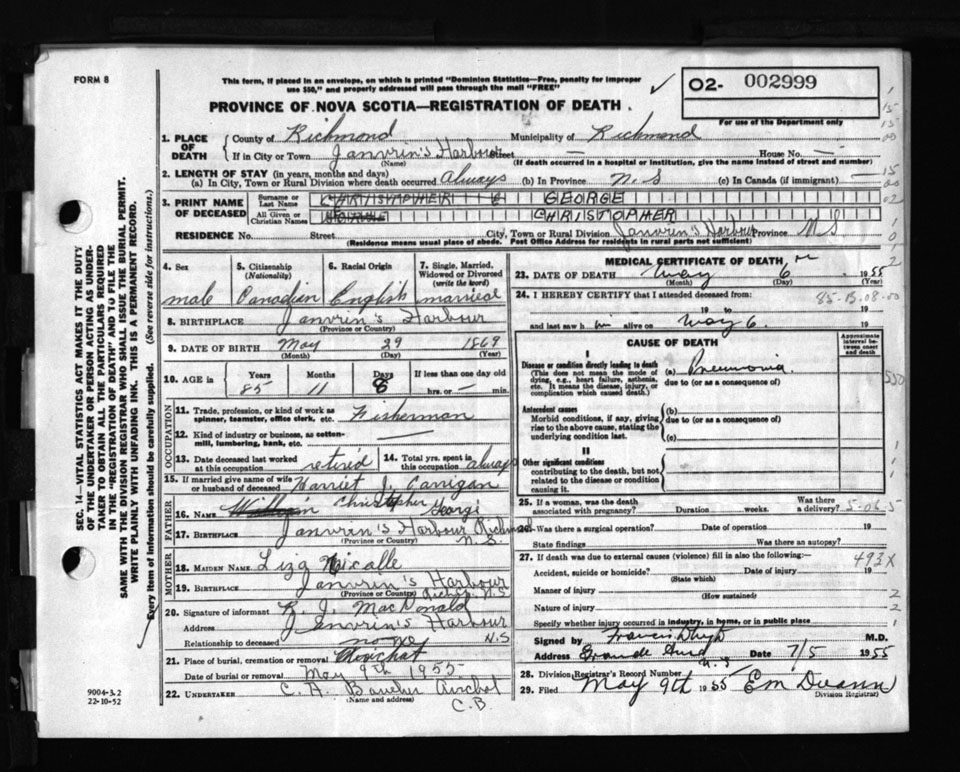 FORM 8
This form, if placed in an envelope, on which is printed "Dominion Statistics—Free, penalty for improper
use $50," and properly addressed will pass through the mail "FREE"
02- 002999
For use of the Department only
PROVINCE OF NOVA SCOTIA—REGISTRATION OF DEATH
1. PLACE OF DEATH County of Richmond Municipality of Richmond
If in City or Town Janvrin's Harbour Street — House No. —
(Name) (If death occurred in a hospital or institution, give the name instead of street and number)
2. LENGTH OF STAY (in years, months and days)
(a) In City, Town or Rural Division where death occurred always (b) In Province N.S (c) In Canada (if immigrant) —
3. PRINT NAME OF DECEASED Surname or Last Name CHRISTOPHER GEORGE
All Given or Christian Names CHRISTOPHER
RESIDENCE No. Street City, Town or Rural Division Janvrin's Harbour Province N.S.
(Residence means usual place of abode. Post Office Address for residents in rural parts not sufficient)
4. Sex male
5. Citizenship (Nationality) Canadian
6. Racial Origin English
7. Single, Married, Widowed or Divorced (write the word) married
8. BIRTHPLACE Janvrin's Harbour
(Province or Country)
9. DATE OF BIRTH May 29 1869
(Month) (Day) (Year)
10. AGE in Years Months Days If less than one day old
85 11 8 hrs. or — min.
OCCUPATION
11. Trade, profession, or kind of work as spinner, teamster, office clerk, etc. Fisherman
12. Kind of industry or business, as cotten-mill, lumbering, bank, etc. —
13. Date deceased last worked at this occupation retired
14. Total yrs. spent in this occupation always
15. If married give name of wife or husband of deceased Harriet J. Carrigan
FATHER
16. Name William Christopher George
17. Birthplace Janvrin's Harbour Richmond
(Province or Country) N.S.
MOTHER
18. MAIDEN NAME Liza
19. BIRTHPLACE Janvrin's Harbour
(Province or Country) N.S
20. Signature of informant R. J. MacDonald
Address Janvrin's Harbour
N.S
Relationship to deceased none
21. Place of burial, cremation or removal Arichat
Date of burial or removal May 9th 1955
22. UNDERTAKER C. A. Arichat
(Name and address) C.B.
9004-3.2
22-10-52
MEDICAL CERTIFICATE OF DEATH
23. DATE OF DEATH May 6 1955
(Month) (Day) (Year)
24. I HEREBY CERTIFY that I attended deceased from:
85-B-08-00
19 to 19
and last saw h im alive on May 6. 19
CAUSE OF DEATH
Approximate interval between onset and death
I
Disease or condition directly leading to death (a) Pneumonia
(This does not mean the mode of dying, e.g., heart failure, asthenia, etc. It means the disease, injury, or complication which caused death.)
due to (or as a consequence of)
Antecedent causes (b)
Morbid conditions, if any, giving rise to the above cause, stating the underlying condition last.
due to (or as a consequence of)
(c)
II
Other significant conditions
contributing to the death, but not related to the disease or condition causing it.
25. If a woman, was the death associated with pregnancy? Duration weeks. Was there a delivery?
26. Was there a surgical operation? Date of operation 19
State findings Was there an autopsy?
27. If death was due to external causes (violence) fill in also the following:— 493X
Accident, suicide or homicide? Date of injury 19
(State which)
Manner of injury
(How sustained)
Nature of injury
Specify whether injury occurred in industry, in home, or in public place
Signed by Francis M.D.
Address Date 7/5 1955
N.S
28. Division Registrar's Record Number
29. Filed May 9th 1955
Division Registrar)
SEC. 14—VITAL STATISTICS ACT MAKES IT THE DUTY
OF THE UNDERTAKER OR PERSON ACTING AS UNDER-
TAKER TO OBTAIN ALL THE PARTICULARS REQUIRED
IN THE "REGISTRATION OF DEATH" AND TO FILE THE
SAME WITH THE DIVISION REGISTRAR WHO SHALL ISSUE THE BURIAL PERMIT.
WRITE PLAINLY WITH UNFADING INK. THIS IS A PERMANENT RECORD.
Every item of information should be carefully supplied. (See reverse side for instructions.)